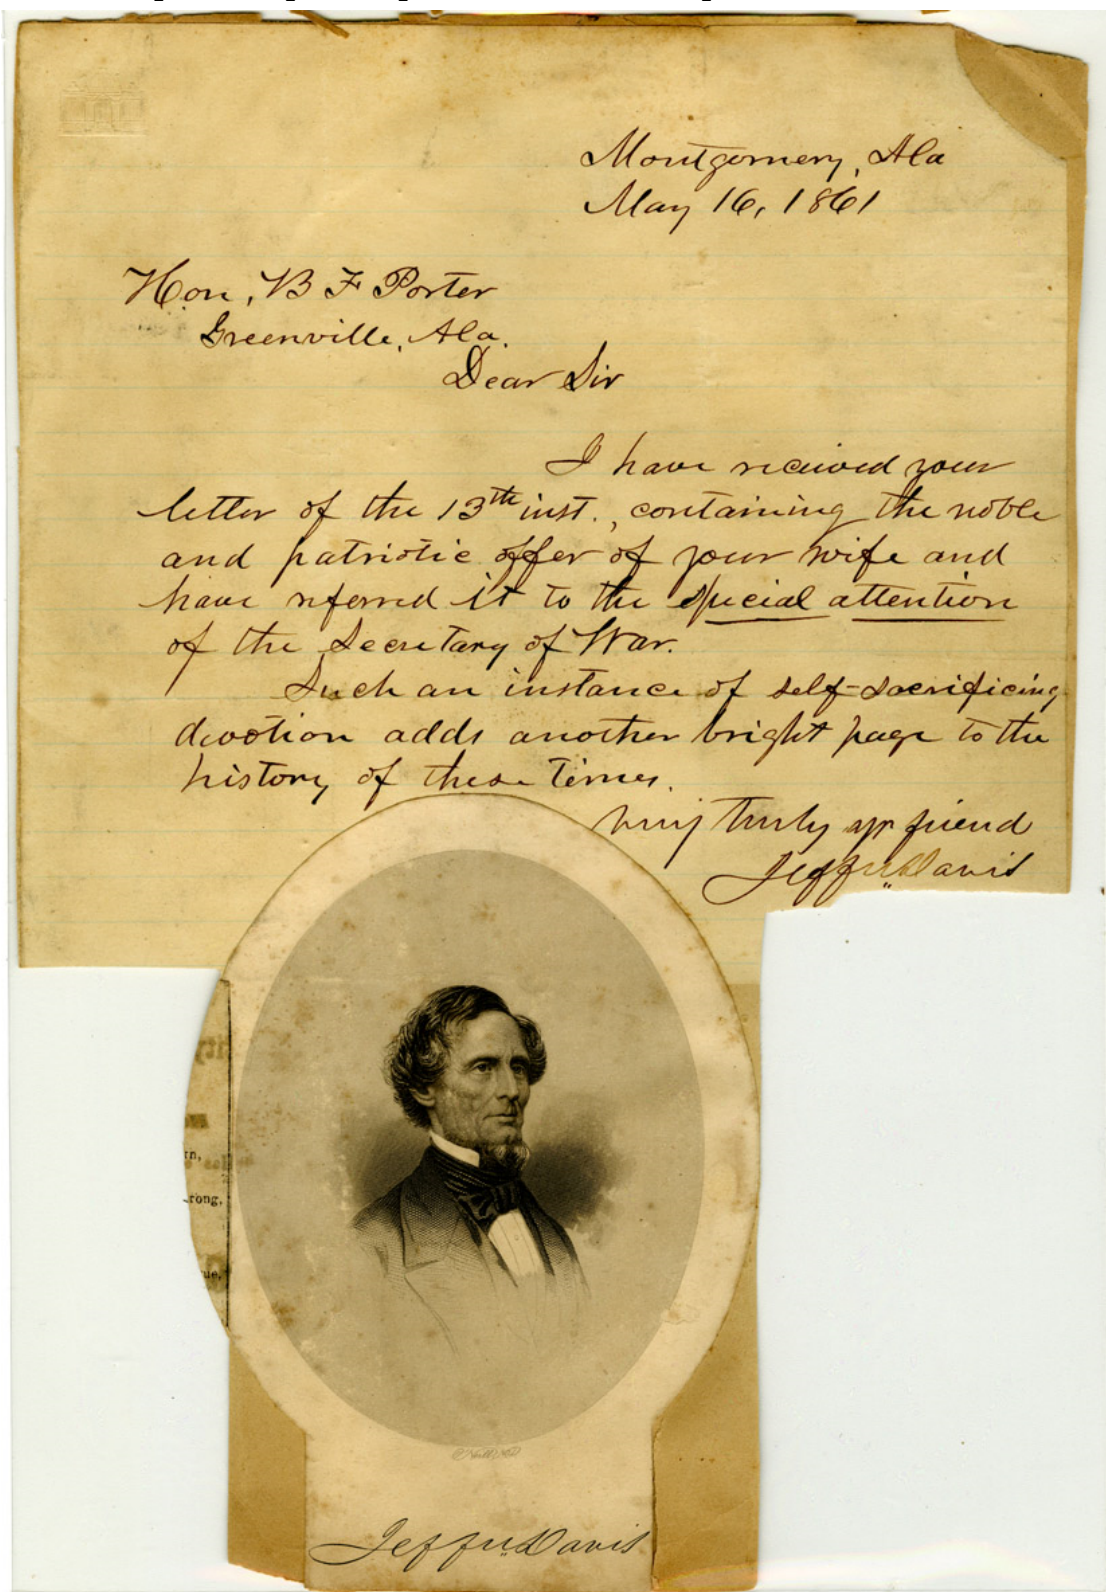 Montgomery, Ala
May 16, 1861
Hon, B F Porter
Greenville, Ala.
Dear Sir
I have received your
letter of the 13th inst., containing the noble
and patriotic offer of your wife and
have referred it to the special attention
of the Secretary of War.
Such an instance of self-sacrificing
devotion adds another bright page to the
history of these times.
Very truly yr friend
Jeffn Davis
rn,
rong,
ue,
Jeffn Davis